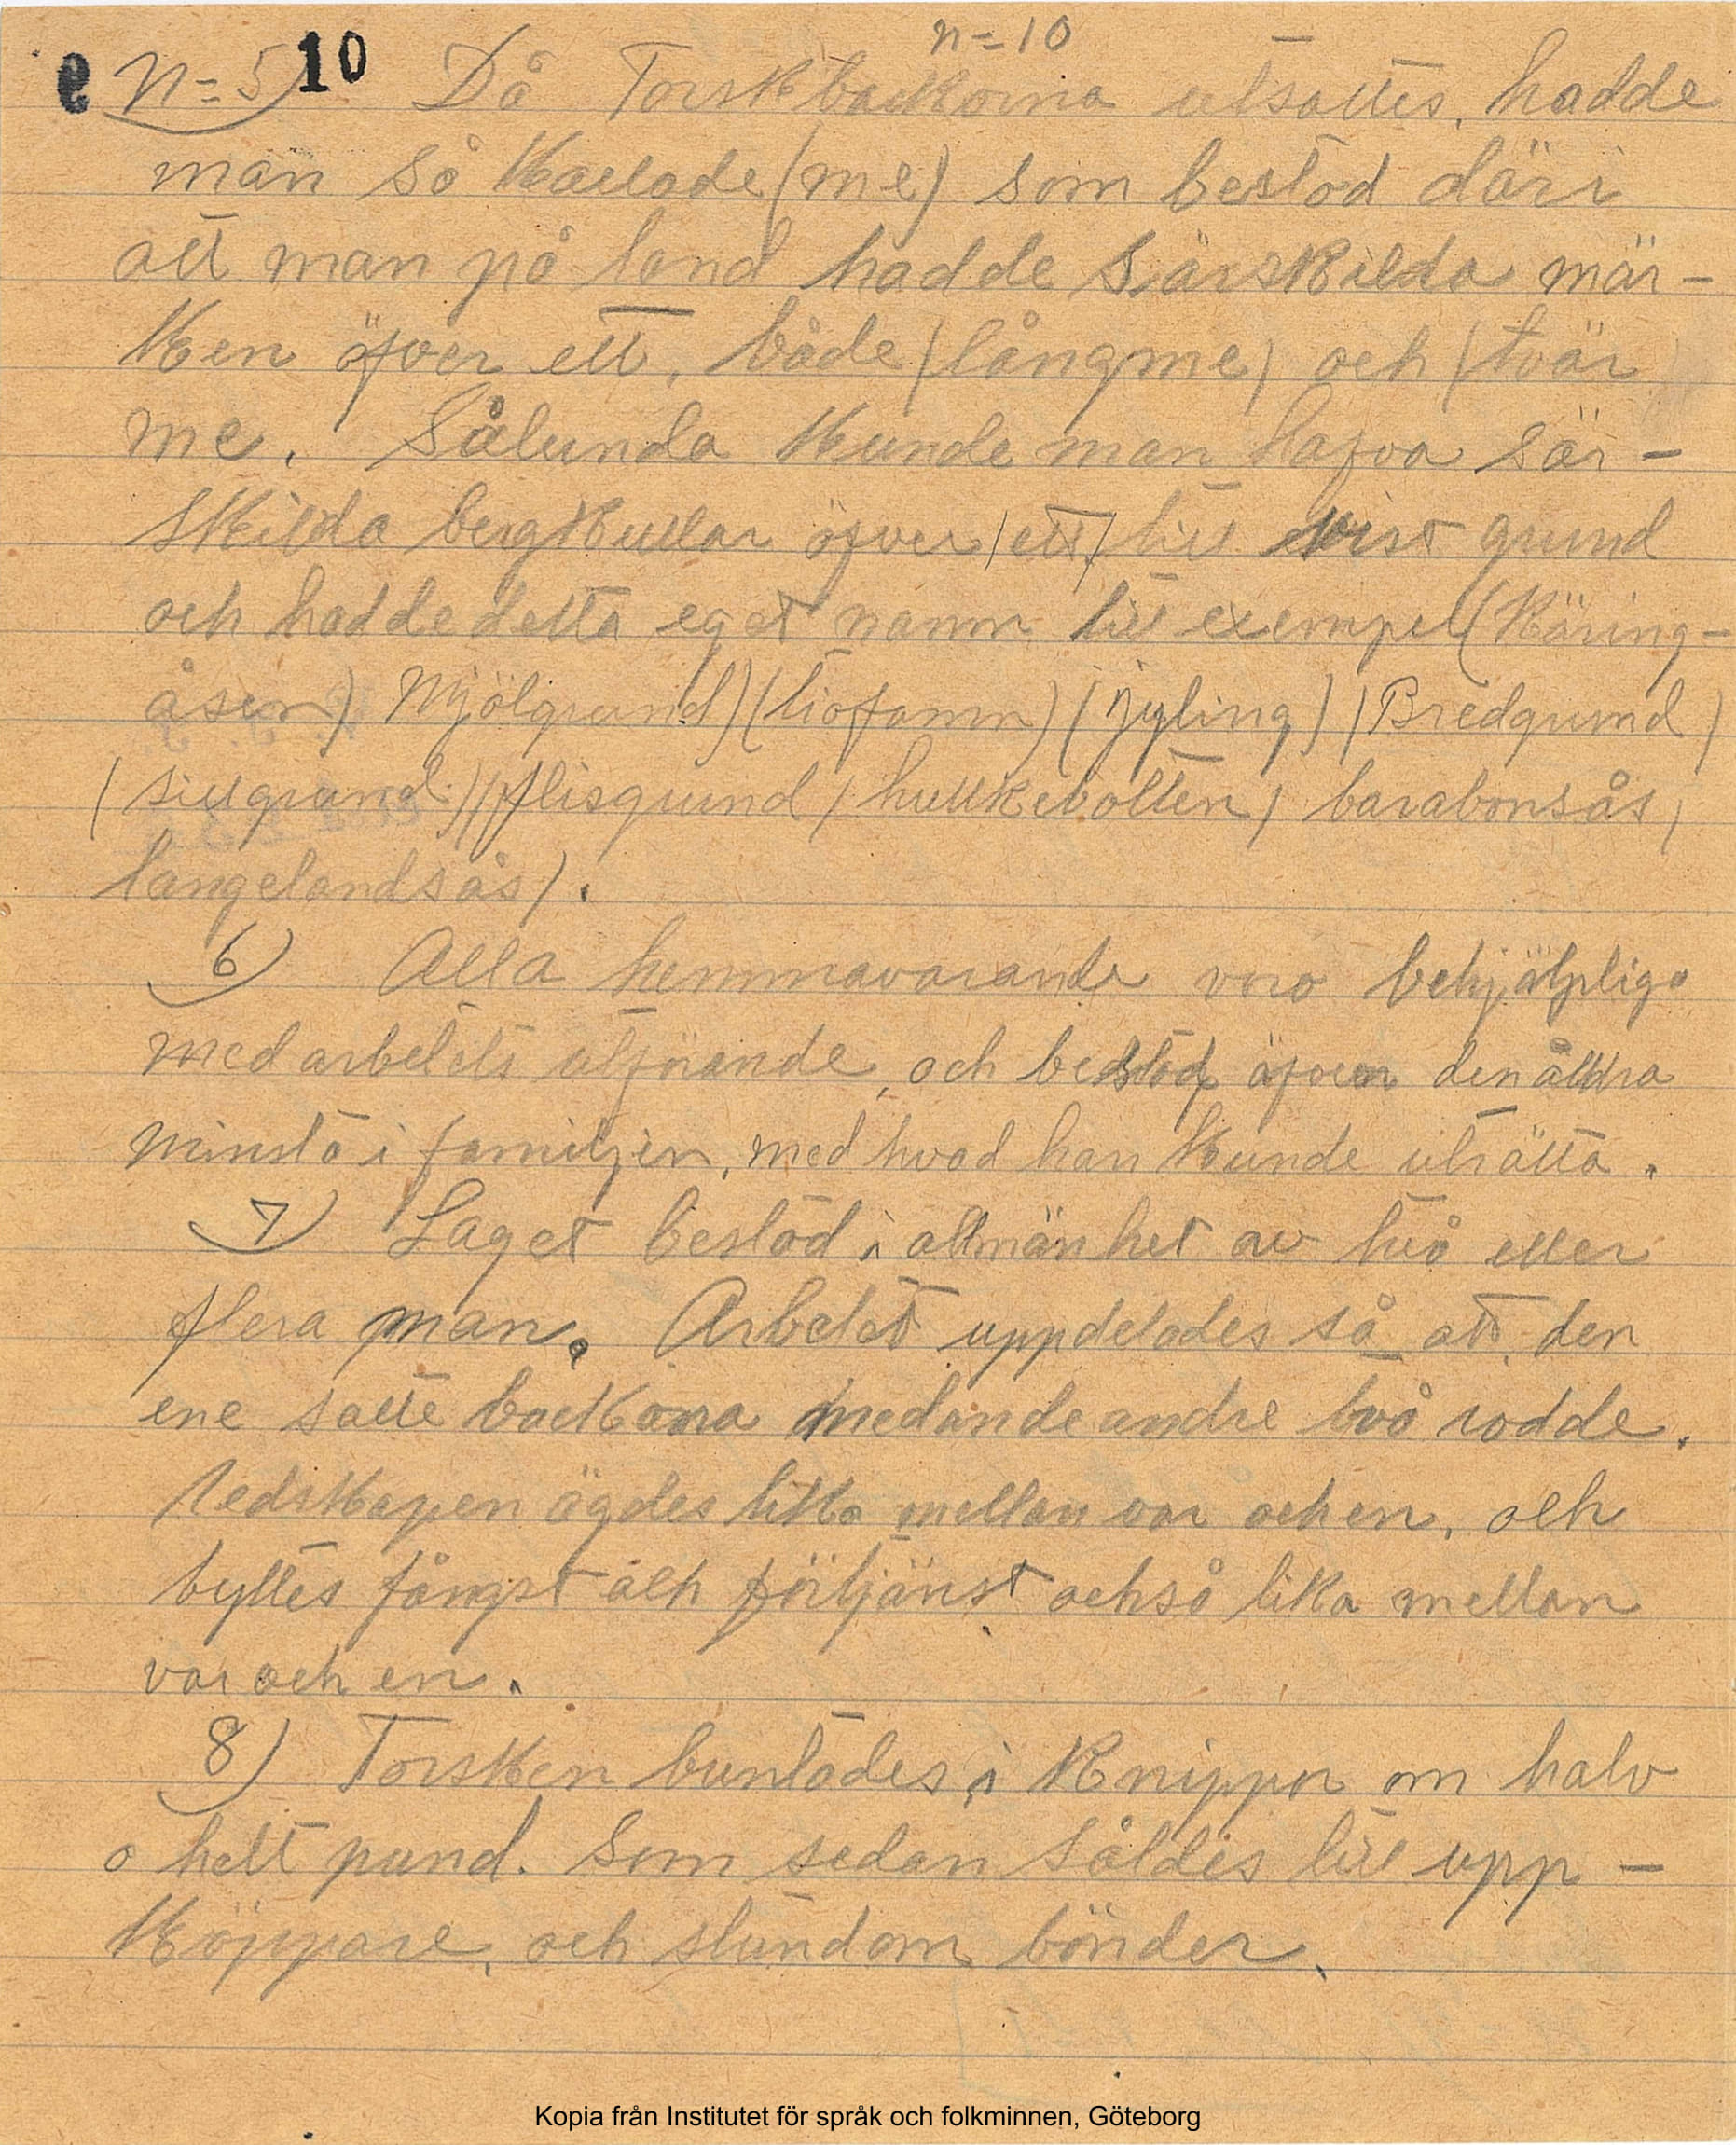 n=10
e n=5) 10 Då Torskbackorna utsattes, hadde
man så kallade (me) som bestod däri
att man på land hadde särskilda mär-
ken öfver ett, både (långme) och (tvär
me. Sålunda kunde man hafva sär-
skilda bergkullar öfver (ett) till visst grund
och hadde detta eget namn till exempel (Käring-
åsen) Mjölgrund) (tiofamn) (jyling) (Bredgrund)
(sillgrund) (flisgrund / hullkebotten / barabonsås /
langelandsås).
6) Alla hemmavarande voro behjälpliga
med arbetets utförande, och bestod äfven den älldra
minsta i familjen, med hvad han kunde uträtta.
7) Laget bestod i allmänhet av två eller
flera man. Arbetet uppdelades så att den
ene satte backorna medan de andre två rodde.
Redskapen ägdes lika mellan var och en, och
byttes fångst och förtjänst ochså lika mellan
var och en.
8) Torsken buntades i knippor om halv
o helt pund. Som sedan såldes till upp-
köppare, och stundom bönder.
Kopia från Institutet för språk och folkminnen, Göteborg